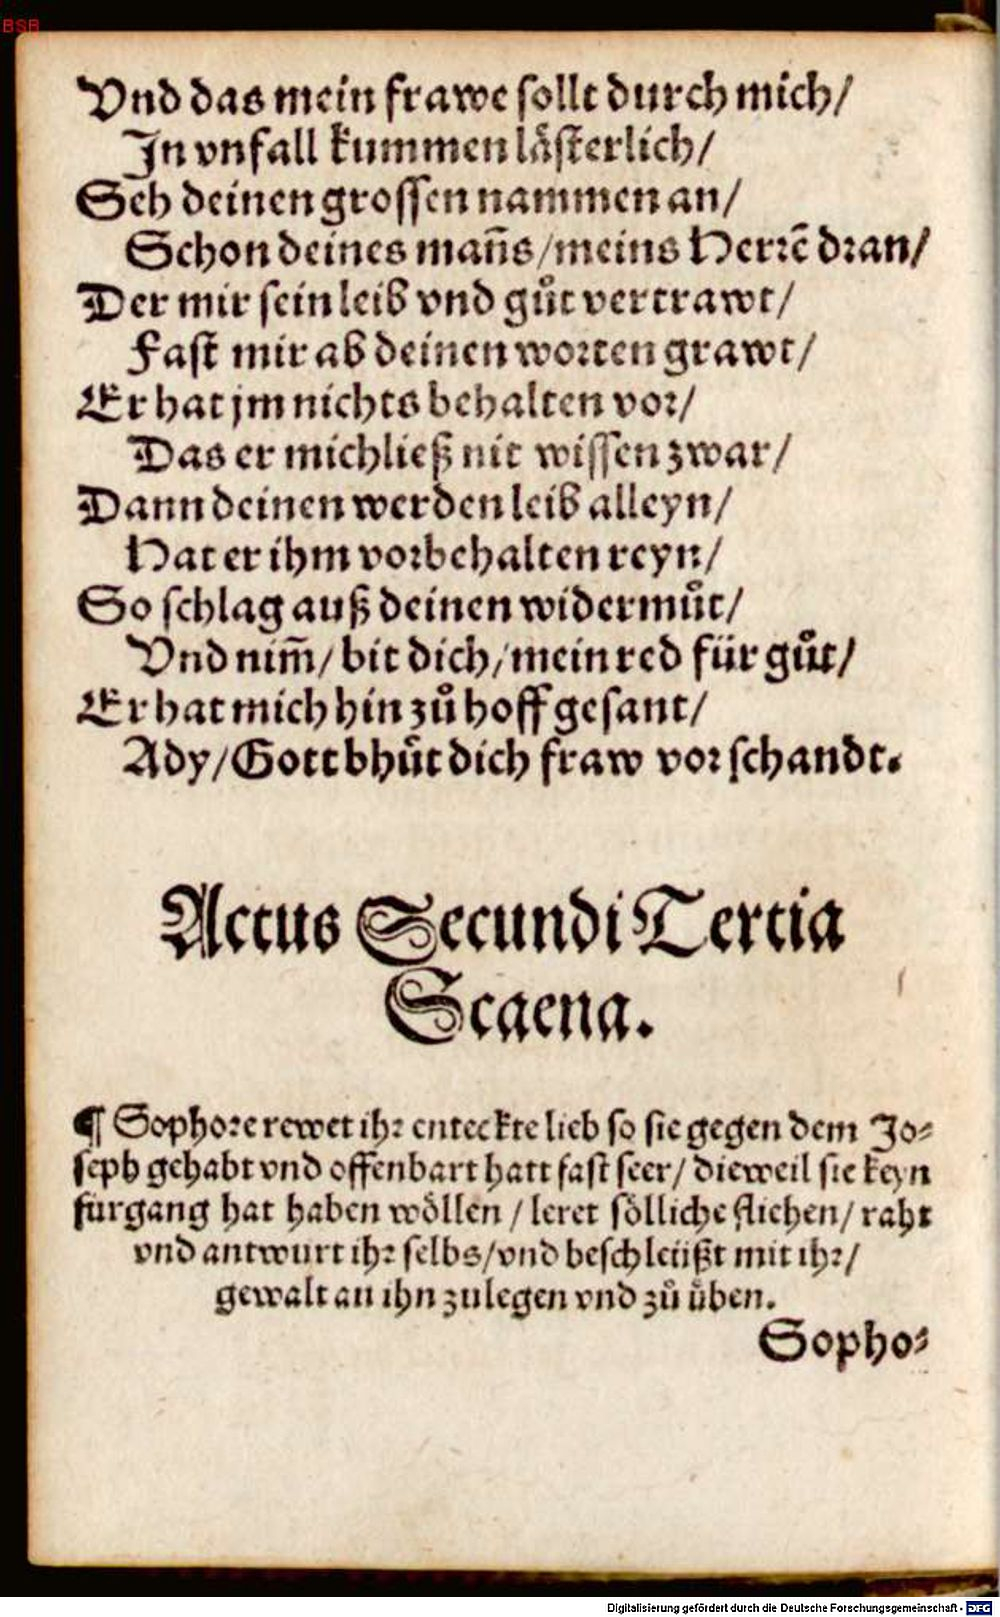 BSB
Vnd das mein frawe sollt durch mich/
Jn vnfall kummen lästerlich/
Seh deinen grossen nammen an/
Schon deines mañs/meins Herrẽ dran/
Der mir sein leib vnd gůt vertrawt/
Fast mir ab deinen worten grawt/
Er hat jm nichts behalten vor/
Das er mich ließ nit wissen zwar/
Dann deinen werden leib alleyn/
Hat er ihm vorbehalten reyn/
So schlag auß deinen widermůt/
Vnd nim̃/ bit dich/ mein red für gůt/
Er hat mich hin zů hoff gesant/
Ady/Gott bhůt dich fraw vor schandt.
Actus Secundi Tertia
Scaena.
¶ Sophore rewet ihr enteckte lieb so sie gegen dem Jo⸗
seph gehabt vnd offenbart hatt fast seer/ dieweil sie keyn
fürgang hat haben wöllen / leret sölliche fliehen/ raht
vnd antwurt ihr selbs/vnd beschleüßt mit ihr/
gewalt an ihn zulegen vnd zů üben.
Sopho⸗
Digitalisierung gefördert durch die Deutsche Forschungsgemeinschaft - DFG